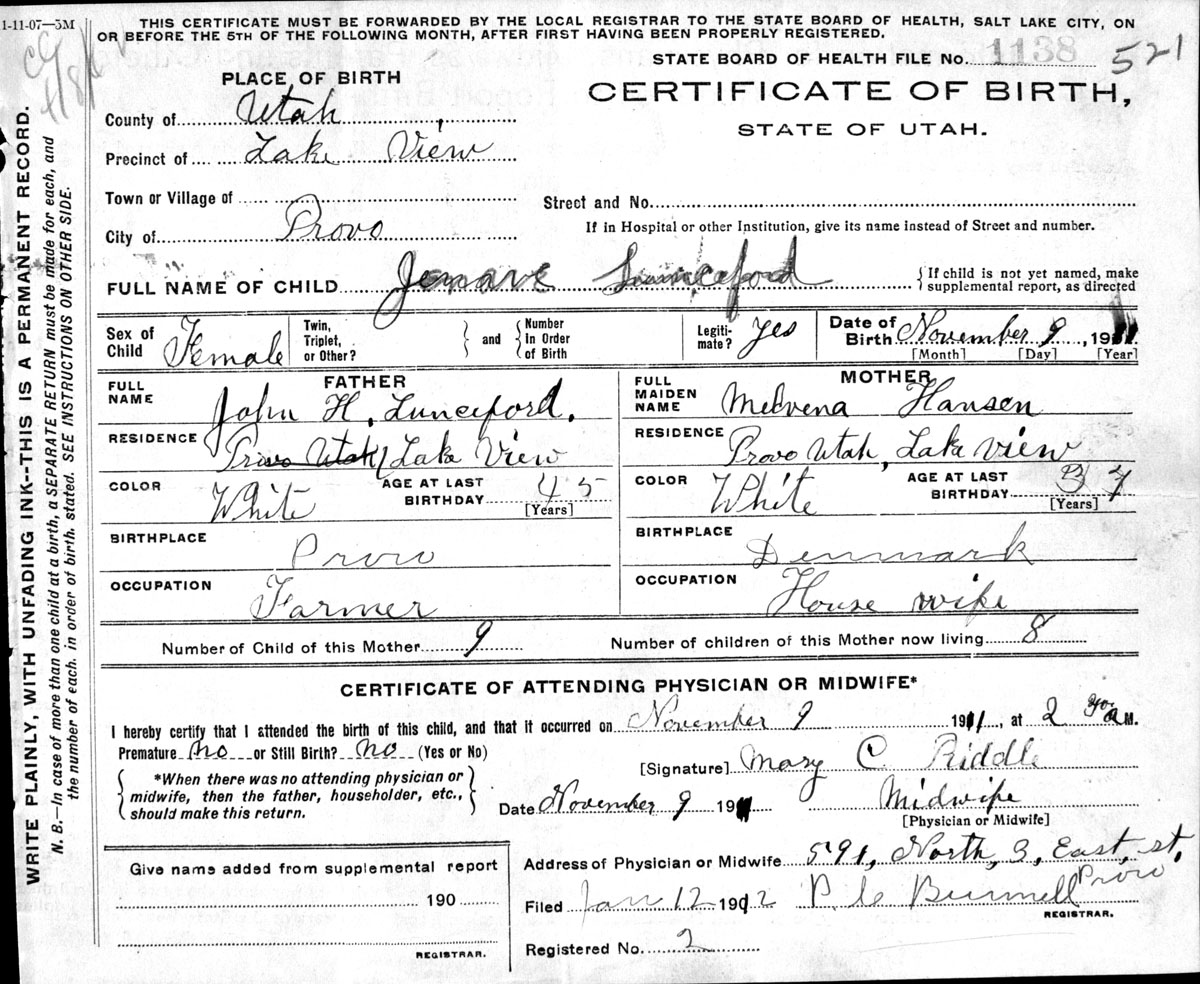 1-11-07—3M
THIS CERTIFICATE MUST BE FORWARDED BY THE LOCAL REGISTRAR TO THE STATE BOARD OF HEALTH, SALT LAKE CITY, ON
OR BEFORE THE 5TH OF THE FOLLOWING MONTH, AFTER FIRST HAVING BEEN PROPERLY REGISTERED.
STATE BOARD OF HEALTH FILE No. 1138 521
WRITE PLAINLY, WITH UNFADING INK--THIS IS A PERMANENT RECORD.
N. B.—In case of more than one child at a birth, a SEPARATE RETURN must be made for each, and
the number of each, in order of birth, stated. SEE INSTRUCTIONS ON OTHER SIDE.
PLACE OF BIRTH
CERTIFICATE OF BIRTH,
STATE OF UTAH.
County of Utah,
Precinct of Lake View
Town or Village of
Street and No.
City of Provo
If in Hospital or other Institution, give its name instead of Street and number.
FULL NAME OF CHILD Lunceford
{If child is not yet named, make
supplemental report, as directed
Sex of Child Female
Twin, Triplet, or Other?
} and {
Number In Order of Birth
Legiti-mate? Yes
Date of Birth November 9, 1911
[Month] [Day] [Year]
FATHER
FULL NAME John H. Lunceford.
RESIDENCE Provo Utah, Lake View
COLOR White
AGE AT LAST BIRTHDAY 45
[Years]
BIRTHPLACE Provo
OCCUPATION Farmer
MOTHER
FULL MAIDEN NAME Melvena Hansen
RESIDENCE Provo Utah, Lake View
COLOR White
AGE AT LAST BIRTHDAY 37
[Years]
BIRTHPLACE Denmark
OCCUPATION House wife
Number of Child of this Mother 9
Number of children of this Mother now living 8
CERTIFICATE OF ATTENDING PHYSICIAN OR MIDWIFE*
I hereby certify that I attended the birth of this child, and that it occurred on November 9 1911, at 2 a M.
Premature no or Still Birth? no (Yes or No)
{*When there was no attending physician or
midwife, then the father, householder, etc.,
should make this return.}
[Signature] Mary C Riddle
Date November 9 1911
Midwife
[Physician or Midwife]
Give name added from supplemental report
190
REGISTRAR.
Address of Physician or Midwife 591, North, 3, East, st, Provo
Filed Jan 12 1912
REGISTRAR.
Registered No. 2